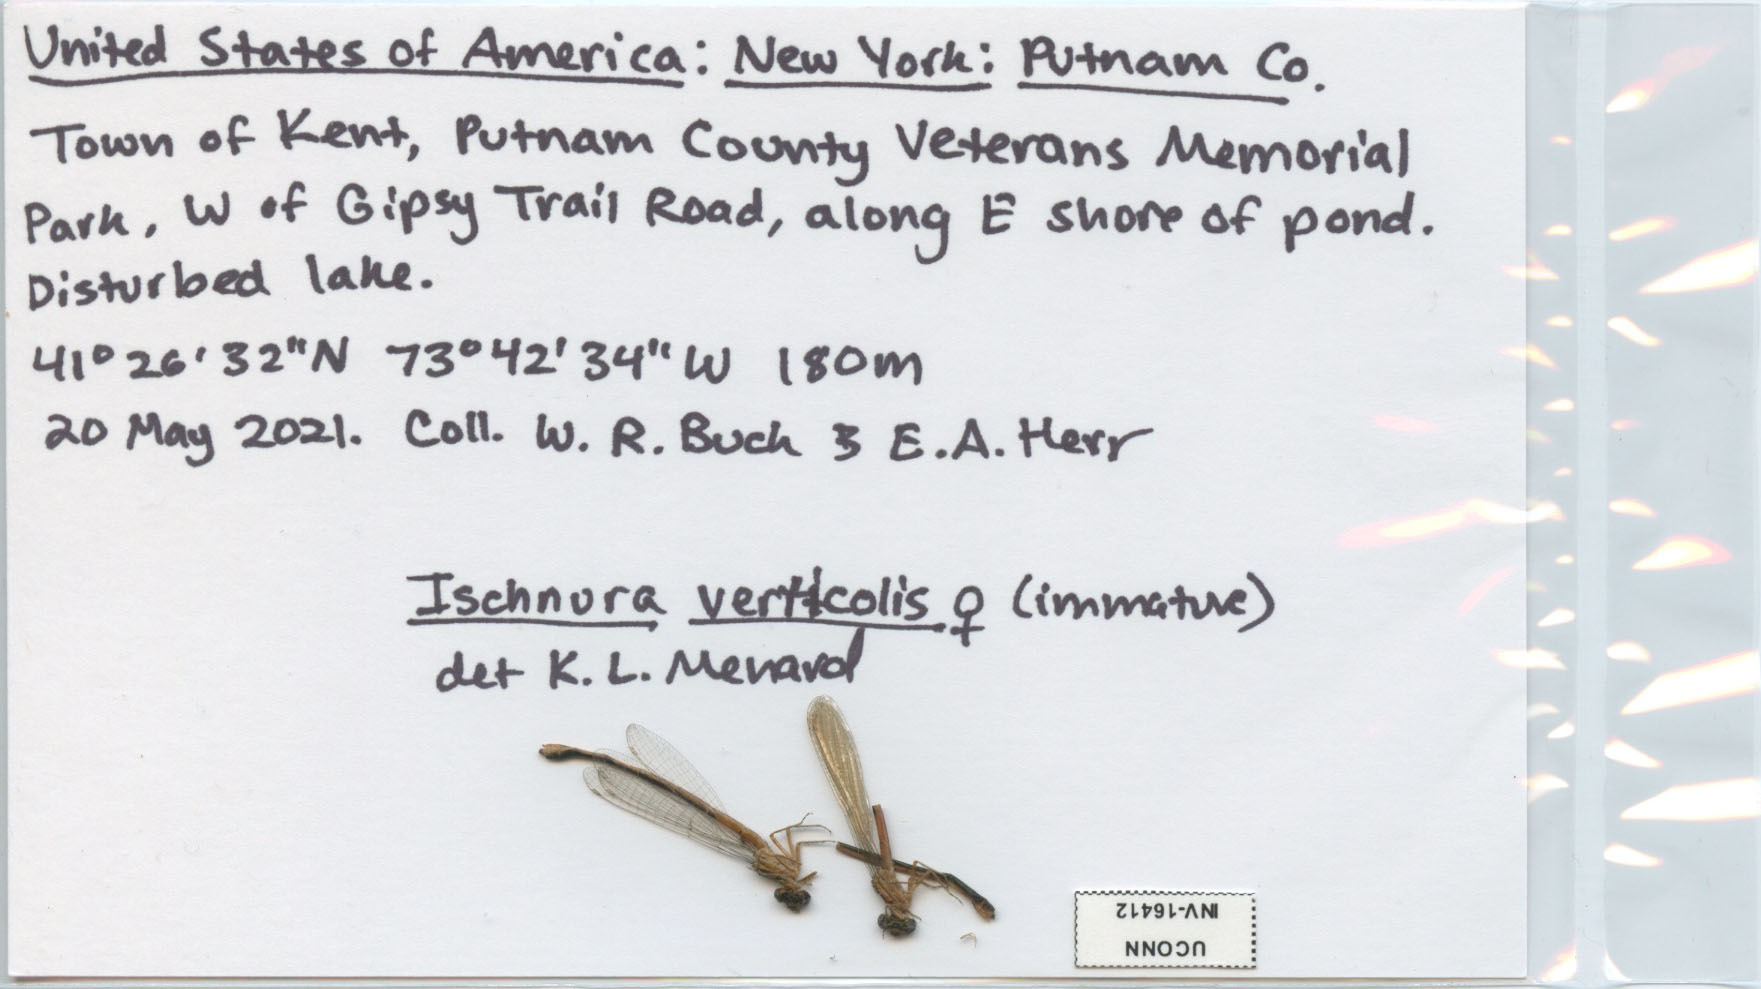 United States of America: New York: Putnam Co.
Town of Kent, Putnam County Veterans Memorial
Park, W of Gipsy Trail Road, along E shore of pond.
Disturbed lake.
41° 26' 32" N 73° 42' 34" W 180m
20 May 2021. Coll. W. R. Buck & E.A. Herr
Ischnura verticolis ♀ (immature)
det K. L. Menard
UCONN
INV-16412